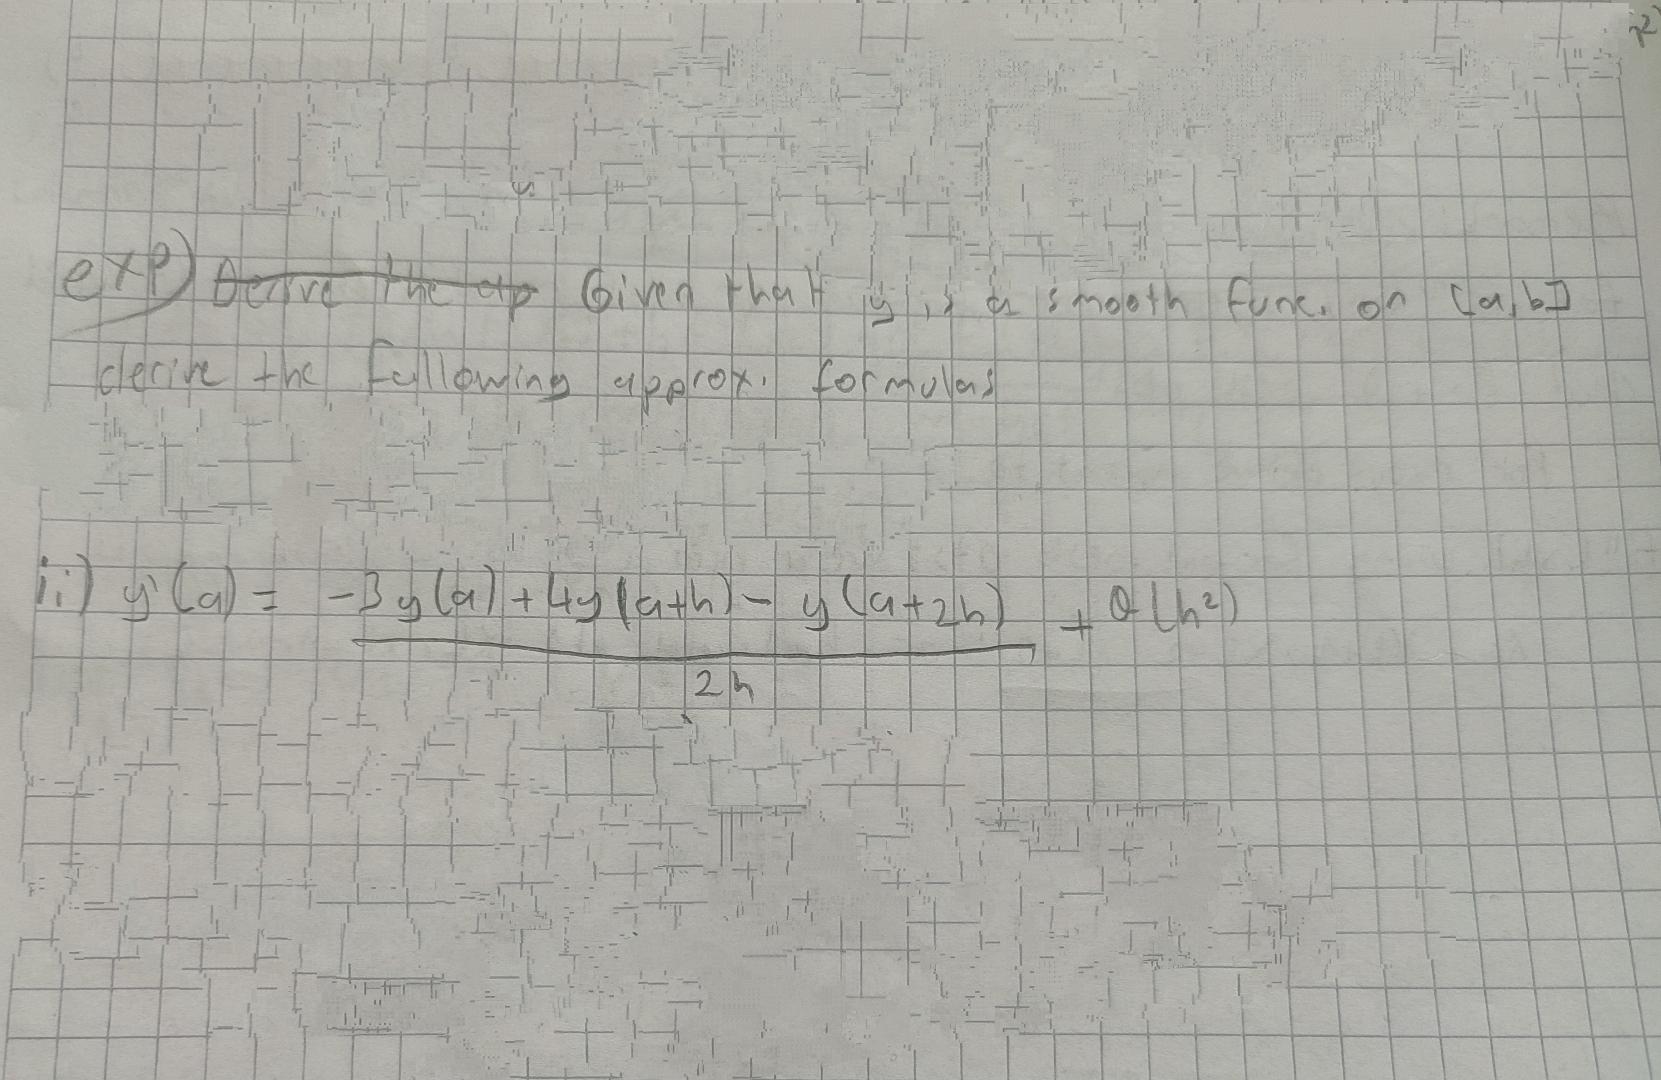 exp) Derive the ap Given that y is a smooth func. on [a,b]
derive the following approx. formulas
ii) y'(a) = -3y(a) + 4y(a+h) - y(a+2h) + O(h²)
2h